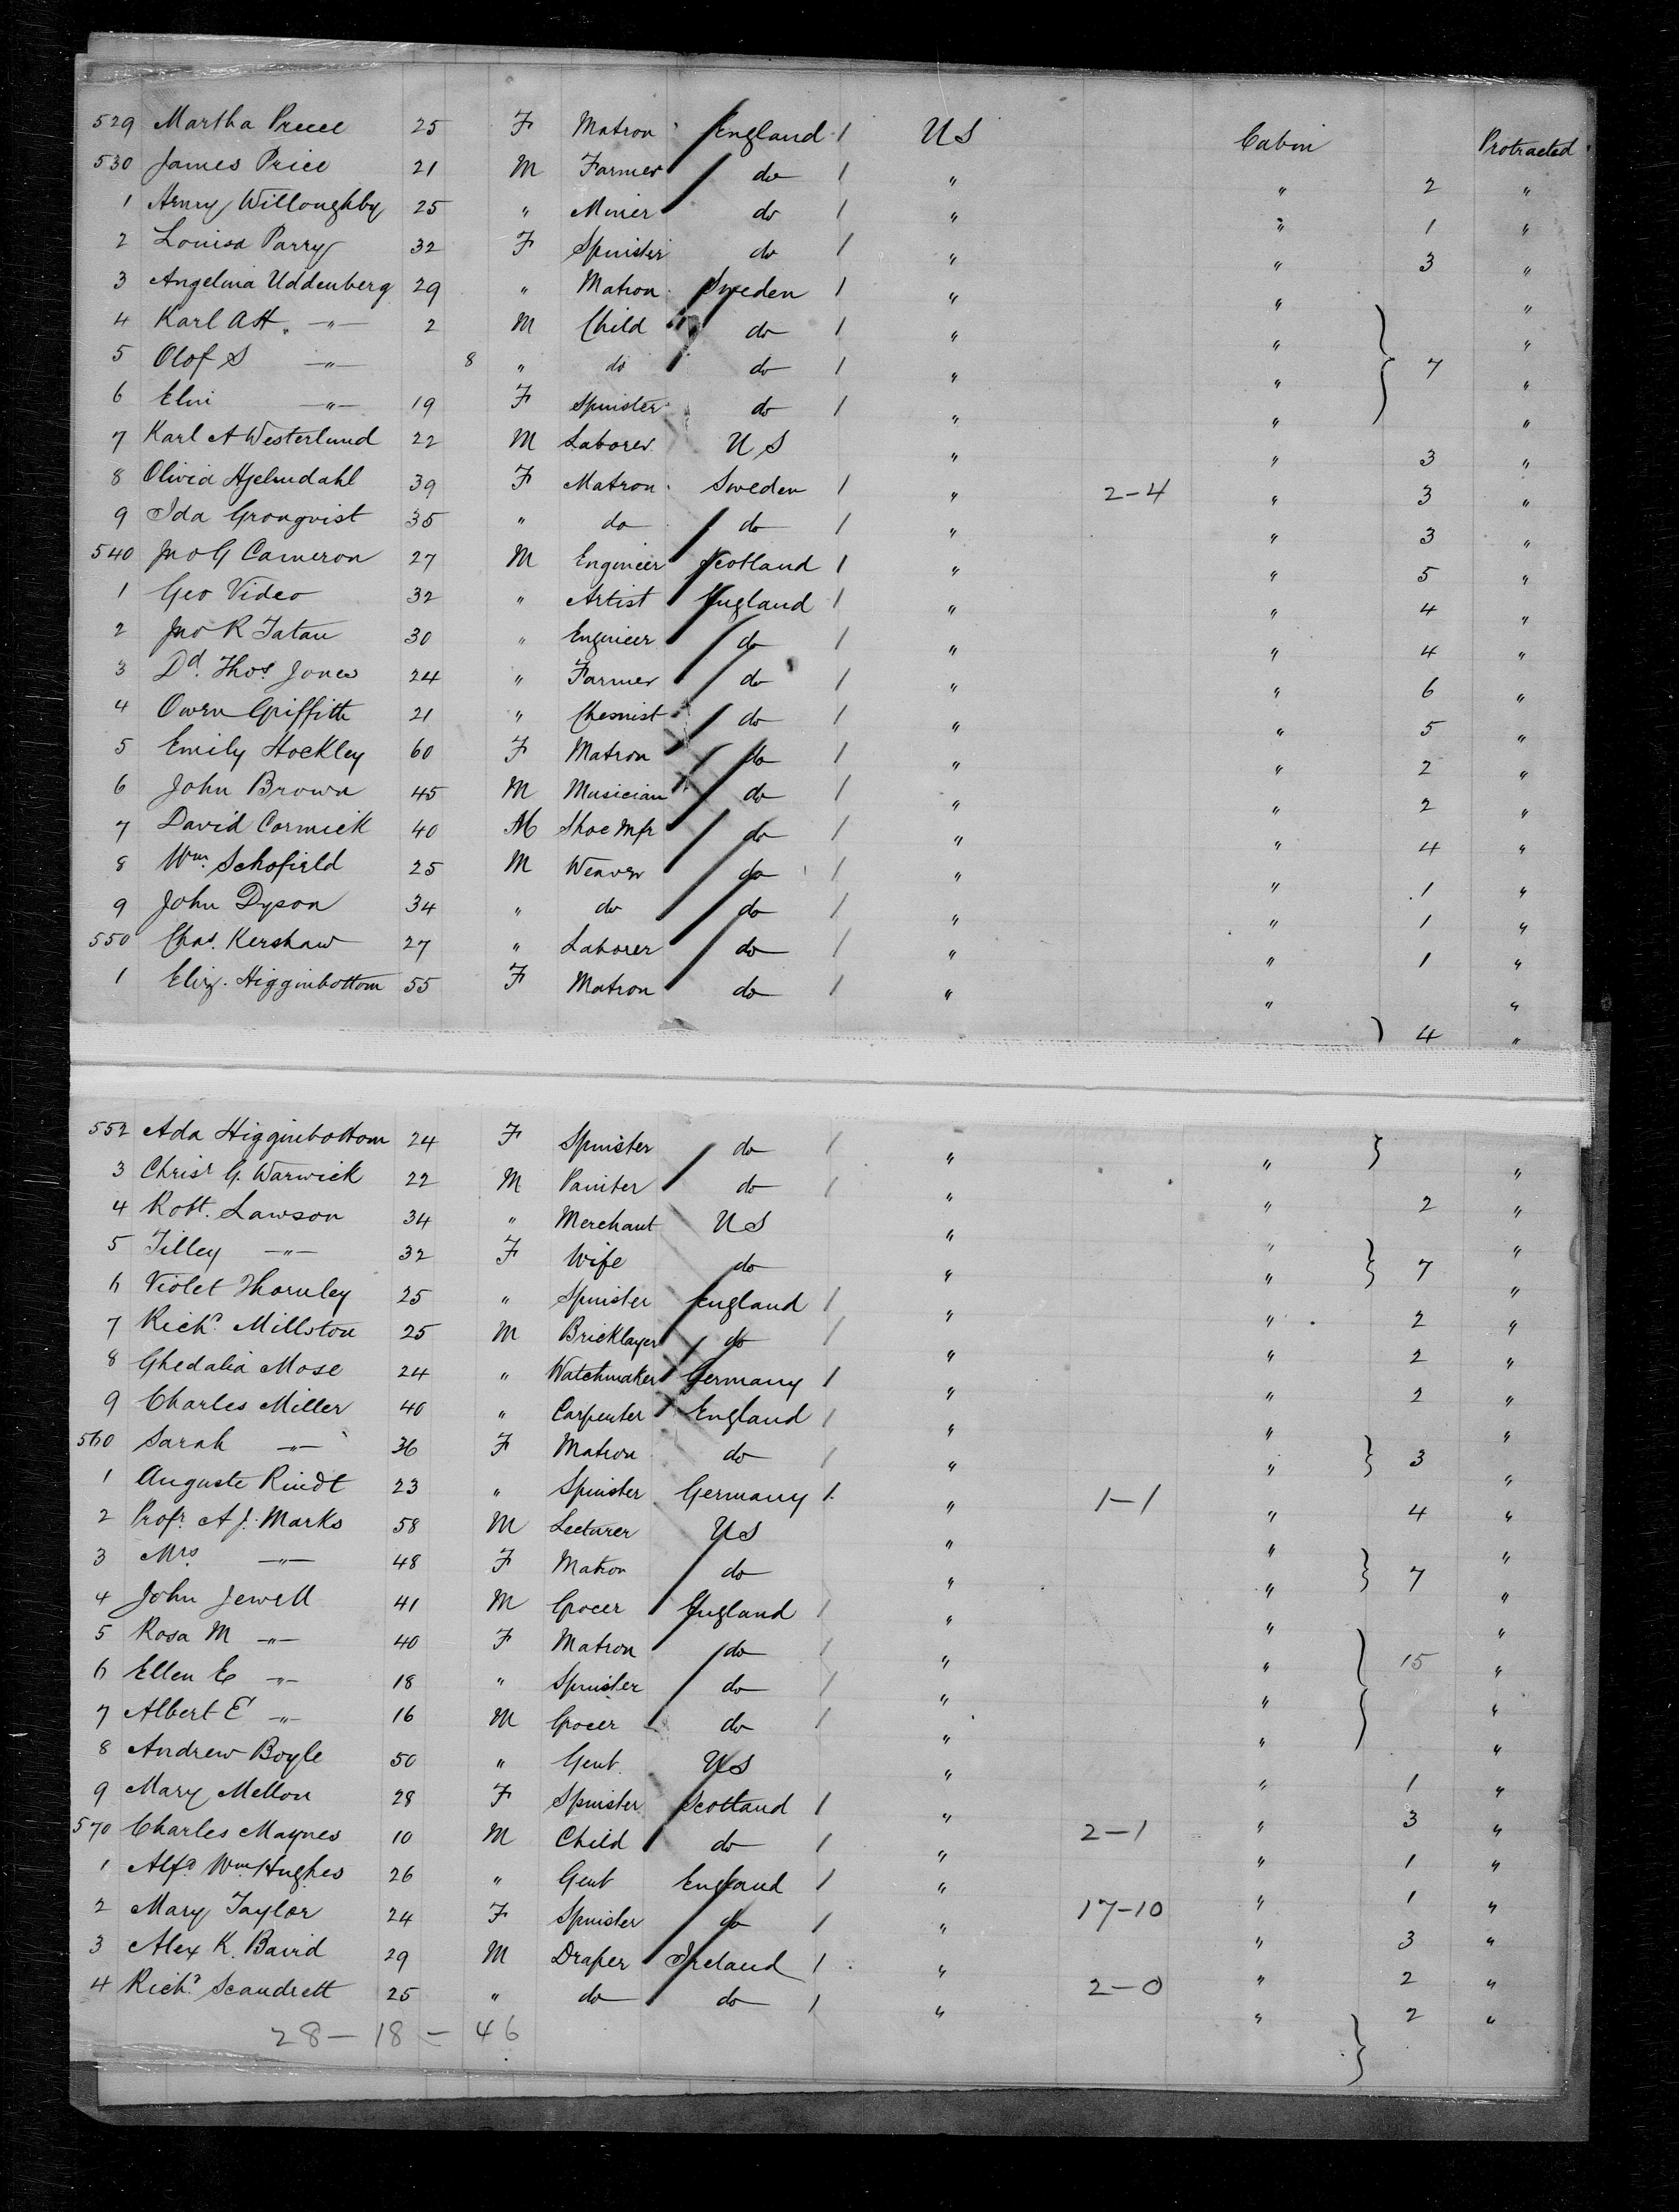 529 Martha Preece 25 F Matron England 1 US Cabin Protracted
530 James Price 21 M Farmer do 1 " " 2 "
1 Henry Willoughby 25 " Miner do 1 " " 1 "
2 Louisa Parry 32 F Spinister do 1 " " 3 "
3 Angelina Uddenberg 29 " Matron Sweden 1 " " "
4 Karl AH. —"— 2 M Child do 1 " " "
5 Olof S —"— 8 " do do 1 " " 7 "
6 Elin —"— 19 F Spinister do 1 " " "
7 Karl A Westerlund 22 M Laborer US " " 3 "
8 Olivia Hjelmdahl 39 F Matron Sweden 1 " 2-4 " 3 "
9 Ida Gronqvist 35 " do do 1 " " 3 "
540 Jno G Cameron 27 M Engineer Scotland 1 " " 5 "
1 Geo Video 32 " Artist England 1 " " 4 "
2 Jno R Tatau 30 " Engineer do 1 " " 4 "
3 Dd. Thos. Jones 24 " Farmer do 1 " " 6 "
4 Owen Griffith 21 " Chemist do 1 " " 5 "
5 Emily Hockley 60 F Matron do 1 " " 2 "
6 John Brown 45 M Musician do 1 " " 2 "
7 David Cormick 40 M Shoe Mfr do 1 " " 4 "
8 Wm. Schofield 25 M Weaver do 1 " " 1 "
9 John Dyson 34 " do do 1 " " 1 "
550 Chas. Kershaw 27 " Laborer do 1 " " 1 "
1 Eliz. Higginbottom 55 F Matron do 1 " " "
4 "
552 Ada Higginbottom 24 F Spinister do 1 " " "
3 Chrisr G. Warwick 22 M Painter do 1 " " 2 "
4 Robt. Lawson 34 " Merchant US " " "
5 Tilley —"— 32 F Wife do " " 7 "
6 Violet Thornley 25 " Spinister England 1 " " 2 "
7 Richd. Millston 25 M Bricklayer do 1 " " 2 "
8 Ghedalia Mose 24 " Watchmaker Germany 1 " " 2 "
9 Charles Miller 40 " Carpenter England 1 " " "
560 Sarah —"— 36 F Matron do 1 " " 3 "
1 Auguste Rindt 23 " Spinister Germany 1 " 1-1 " 4 "
2 Profr. A J. Marks 58 M Lecturer US " " "
3 Mrs —"— 48 F Matron do " " 7 "
4 John Jewell 41 M Grocer England 1 " " "
5 Rosa M —"— 40 F Matron do 1 " " 15 "
6 Ellen E —"— 18 " Spinister do 1 " " "
7 Albert E —"— 16 M Grocer do 1 " " "
8 Andrew Boyle 50 " Gent. US " " 1 "
9 Mary Mellon 28 F Spinister Scotland 1 " " 3 "
570 Charles Maynes 10 M Child do 1 " 2-1 " 1 "
1 Alfd. Wm Hughes 26 " Gent England 1 " " 1 "
2 Mary Taylor 24 F Spinister do 1 " 17-10 " 3 "
3 Alex K. Baird 29 M Draper Ireland 1 " " 2 "
4 Richd. Scandrett 25 " do do 1 " 2-0 " 2 "
28 - 18 - 46